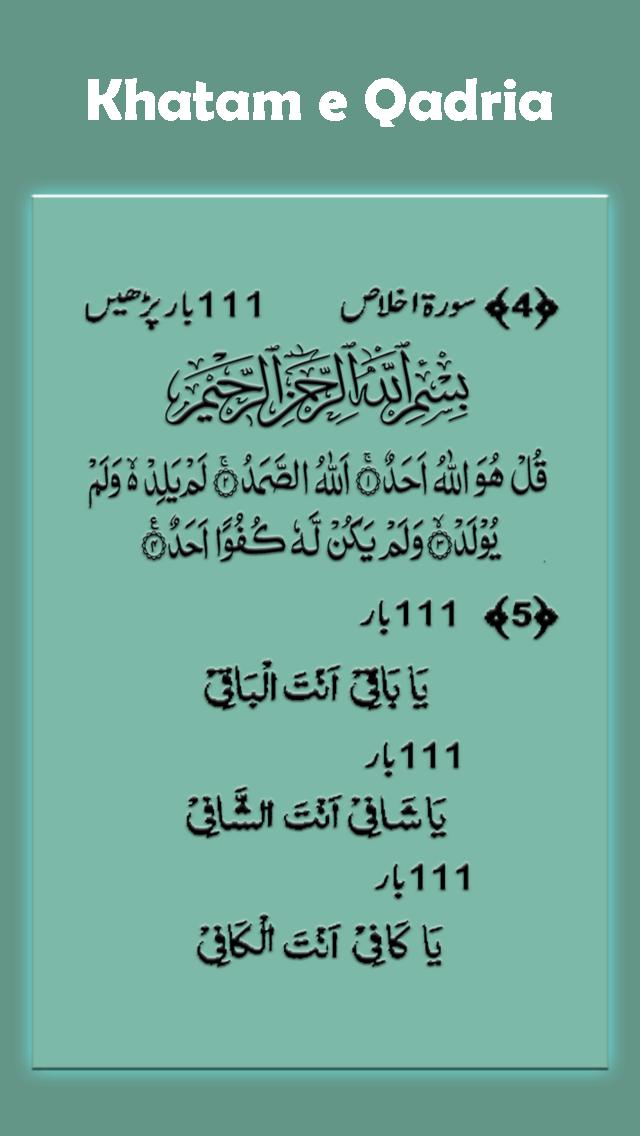 Khatam e Qadria
﴿4﴾ سورۃ اخلاص 111 بار پڑھیں
بِسْمِ اللّٰهِ الرَّحْمٰنِ الرَّحِيْمِ
قُلْ هُوَ اللّٰهُ اَحَدٌۚ ۝۱ اَللّٰهُ الصَّمَدُۚ ۝۲ لَمْ يَلِدْ ۙ وَلَمْ
يُوْلَدْۙ ۝۳ وَلَمْ يَكُنْ لَّهٗ كُفُوًا اَحَدٌ۠ ۝۴
﴿5﴾ 111 بار
يَا بَاقِيْ اَنْتَ الْبَاقِيْ
111 بار
يَا شَافِيْ اَنْتَ الشَّافِيْ
111 بار
يَا كَافِيْ اَنْتَ الْكَافِيْ